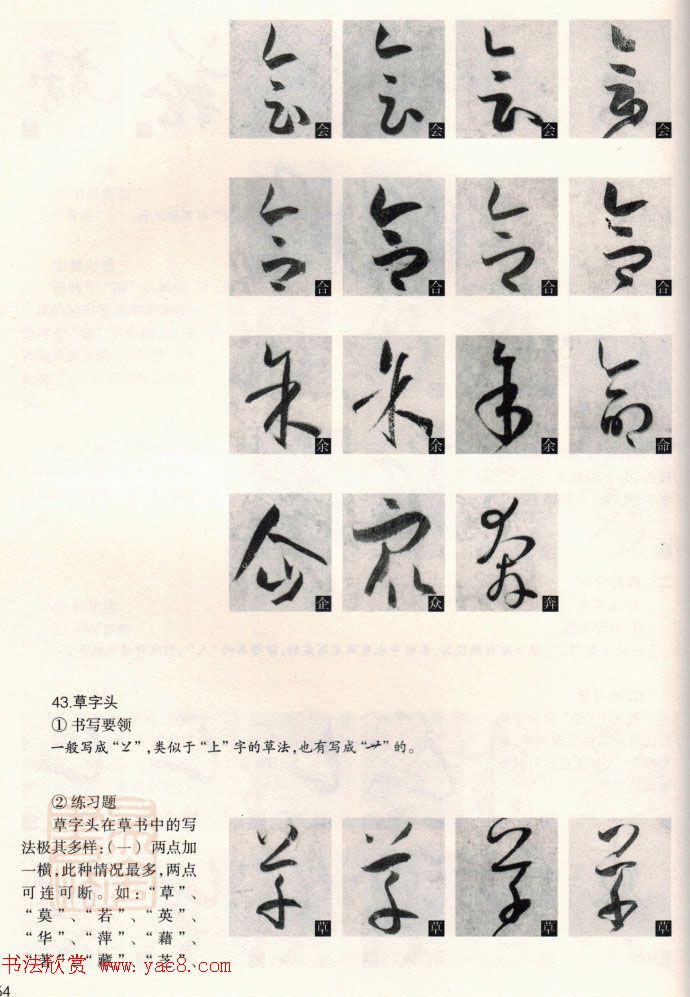 会 会 会 会
合 合 合 合
余 余 余 命
企 众 奔
43.草字头
① 书写要领
一般写成“䒑”,类似于“上”字的草法,也有写成“艹”的。
② 练习题
草字头在草书中的写
法极其多样:(一) 两点加
一横,此种情况最多,两点
可连可断。如:“草”、
“莫”、“若”、“英”、
“华”、“萍”、“藉”、
“著”、“藏”、“茎”、
草 草 草 草
书法欣赏 www.yac8.com
54